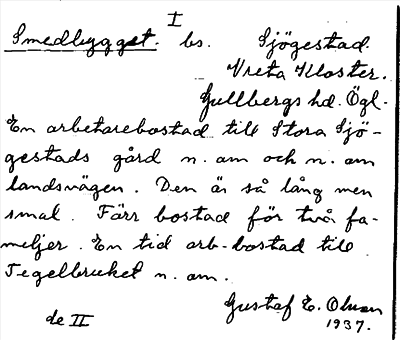 I
Smedbygget. bs. Sjögestad.
Vreta Kloster.
Gullbergs hd. Ögl.
En arbetarebostad till Stora Sjö-
gestads gård n. om och n. om
landsvägen. Den är så lång men
smal. Färr bostad för två fa-
miljer. En tid arb-bostad till
Tegelbruket n. om.
Gustaf E. Olson
1937.
de II